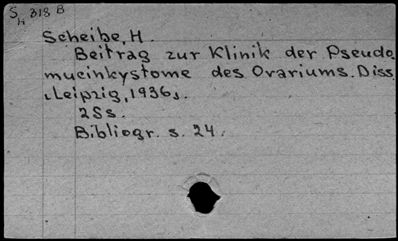 S
h 313 B
Scheibe, H.
Beitrag zur Klinik der Pseudo
mucinkystome des Ovariums. Diss
Leipzig, 1936.
2Ss.
Bibliogr. s. 24.